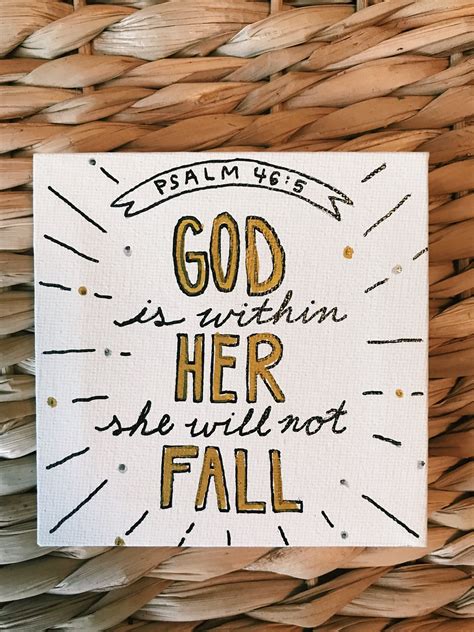 PSALM 46:5
GOD
is within
HER
she will not
FALL